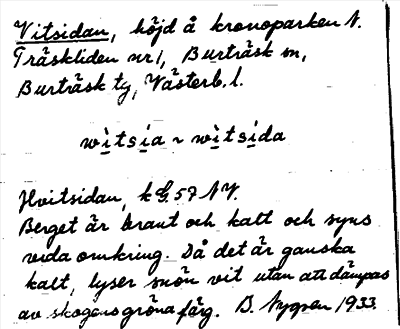 Vitsidan, höjd å kronoparken N.
Träskliden nr 1, Burträsk sn,
Burträsk tg, Västerb. l.
witsia ~ witsida
Hvitsidan, k G. 57 NV.
Berget är brant och kalt och syns
vida omkring. Då det är ganska
kalt, lyser snön vit utan att dämpas
av skogens gröna färg. B. Nygren 1933.